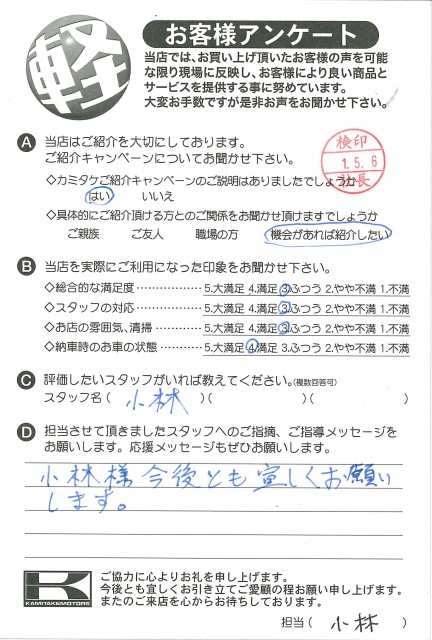 軽
お客様アンケート
当店では、お買い上げ頂いたお客様の声を可能
な限り現場に反映し、お客様により良い商品と
サービスを提供する事に努めています。
大変お手数ですが是非お声をお聞かせ下さい。
A 当店はご紹介を大切にしております。
ご紹介キャンペーンについてお聞かせ下さい。
検印
1.5.6
社長
◇カミタケご紹介キャンペーンのご説明はありましたでしょうか
はい いいえ
◇具体的にご紹介頂ける方とのご関係をお聞かせ頂けますでしょうか
ご親族 ご友人 職場の方 機会があれば紹介したい
B 当店を実際にご利用になった印象をお聞かせ下さい。
◇総合的な満足度 ・・・・・・・・・・・・ 5.大満足 4.満足 3.ふつう 2.やや不満 1.不満
◇スタッフの対応 ・・・・・・・・・・・・ 5.大満足 4.満足 3.ふつう 2.やや不満 1.不満
◇お店の雰囲気、清掃 ・・・・・・・・ 5.大満足 4.満足 3.ふつう 2.やや不満 1.不満
◇納車時のお車の状態 ・・・・・・・・ 5.大満足 4.満足 3.ふつう 2.やや不満 1.不満
C 評価したいスタッフがいれば教えてください。(複数回答可)
スタッフ名( 小林 )( )( )
D 担当させて頂きましたスタッフへのご指摘、ご指導メッセージを
お願いします。応援メッセージもぜひお願いします。
小林様今後とも宜しくお願い
します。
K
KAMITAKEMOTORS
ご協力に心よりお礼を申し上げます。
今後とも宜しくお引き立てご愛顧の程お願い申し上げます。
またのご来店を心からお待ちしております。
担当( 小林 )